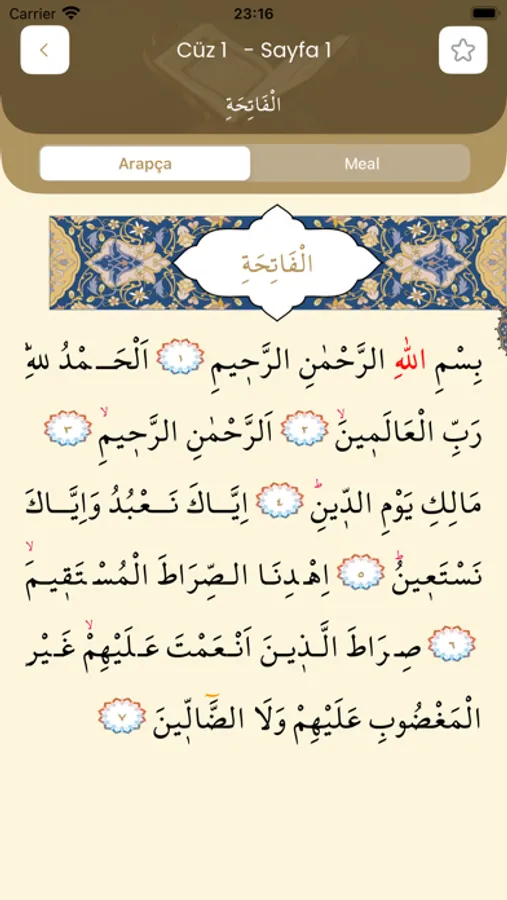 Carrier 23:16
Cüz 1 - Sayfa 1
الْفَاتِحَةِ
Arapça Meal
الْفَاتِحَةِ
بِسْمِ اللّٰهِ الرَّحْمٰنِ الرَّح۪يمِ ١ اَلْحَمْدُ لِلّٰهِ
رَبِّ الْعَالَم۪ينَۙ ٢ اَلرَّحْمٰنِ الرَّح۪يمِۙ ٣
مَالِكِ يَوْمِ الدّ۪ينِۜ ٤ اِيَّاكَ نَعْبُدُ وَاِيَّاكَ
نَسْتَع۪ينُۜ ٥ اِهْدِنَا الصِّرَاطَ الْمُسْتَق۪يمَۙ
٦ صِرَاطَ الَّذ۪ينَ اَنْعَمْتَ عَلَيْهِمْۙ غَيْرِ
الْمَغْضُوبِ عَلَيْهِمْ وَلَا الضَّٓالّ۪ينَ ٧